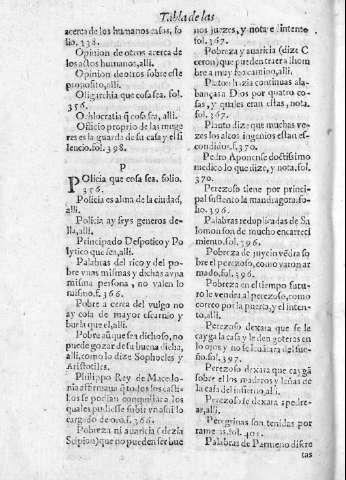 Tabla de las
acerca de los humanos casos, fo
lio. 338.
Opinion de otros acerca de
los actos humanos, alli.
Opinion de otros sobre este
proposito, alli.
Oligarchia que cosa sea. fol.
356.
Ochlocratia q̃ cosa sea, alli.
Officio proprio de las muge
res es la guarda de su casa y el si
lencio. fol. 398.
P
POlicia que cosa sea. folio.
356.
Policia es alma de la ciudad,
alli.
Policia ay seys generos de-
lla, alli.
Principado Despotico y Po
lytico que sea, alli.
Palabras del rico y del po-
bre vnas mismas y dichas a vna
misma persona, no valen lo
mismo. f. 366.
Pobre a cerca del vulgo no
ay cosa de mayor escarnio y
burla que el, alli.
Pobre aũ que sea dichoso, no
puede gozar de su buena dicha,
alli, como lo dize Sophocles y
Aristoteles.
Philippo Rey de Macedo-
nia affirmaua q̃ todos los casti-
llos se podian conquistar a los
quales pudiesse subir vn asnillo
cargado de oro. f. 366.
Pobreza ni auaricia (dezia
Scipion) que no pueden ser bue
nos juezes, y nota el intento
fol. 367.
Pobreza y auaricia (dize Ci
ceron) que pueden traer al hom
bre a muy feo camino, alli.
Platon hazia continuas ala-
banças a Dios por quatro co-
sas, y quales eran estas, nota.
fol. 367.
Plauto dize que muchas ve-
zes los altos ingenios estan es-
condidos. f. 370.
Pedro Aponense doctissimo
medico lo que dize, y nota. fol.
370.
Perezoso tiene por princi-
pal sustento la mandragora. fo-
lio. 396.
Palabras reduplicadas de Sa
lomon son de mucho encarreci
miento. fol. 396.
Pobreza de juyzio vẽdra so
bre el perezoso, como varon ar
mado. fol. 396.
Pobreza en el tiempo futu-
ro le vendra al perezoso, como
correo por la puerta, y el inten-
to, alli.
Perezoso dexara que se le
cayga la casa y le den goteras en
los ojos y no se leuãtara del sue-
ño. fol. 397.
Perezoso dexara que caygã
sobre el los maderos y leñas de
la casa del infierno, alli.
Perezoso se dexara apedre-
ar, alli.
Peregrinas son tenidas por
rameras. fol. 401.
Palabras de Parmeno discre
tas